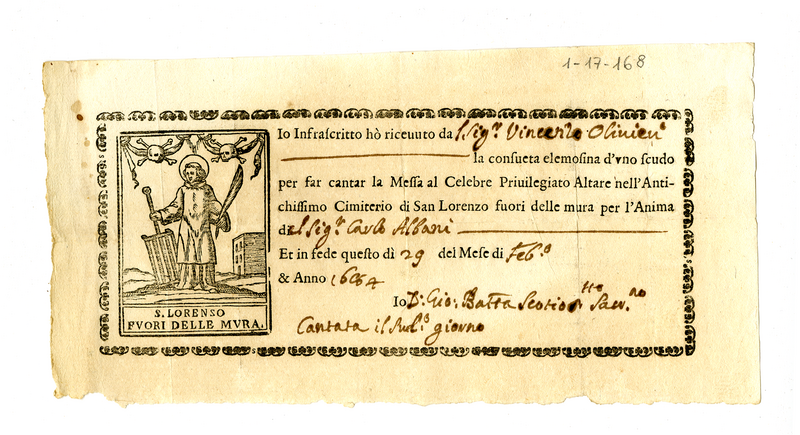 1-17-168
Io Infrascritto hò riceuuto da l Sig.r Vincenzo Oliuieri
la consueta elemosina d'vno scudo
per far cantar la Messa al Celebre Priuilegiato Altare nell'Anti-
chissimo Cimiterio di San Lorenzo fuori delle mura per l'Anima
del Sig.r Carlo Albani
Et in fede questo dì 29 del Mese di Feb.o
& Anno 1684
Io D. Gio: Batta
Cantata il sud.o giorno
S. LORENSO
FVORI DELLE MVRA.